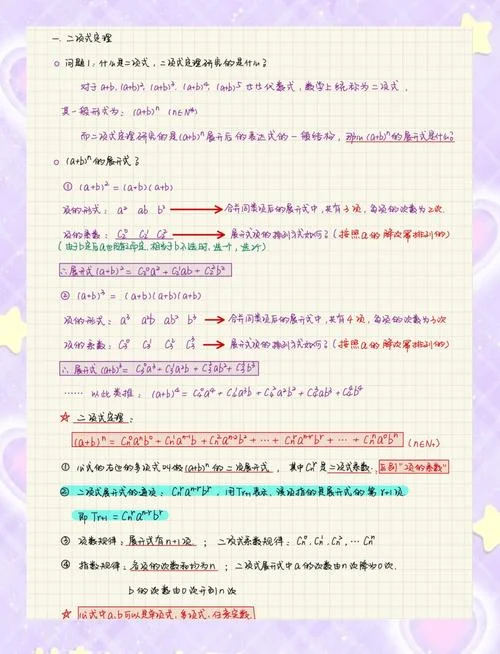 一. 二项式定理
○ 问题1: 什么是二项式, 二项式定理研究的是什么?
对于a+b, (a+b)², (a+b)³, (a+b)⁴, (a+b)⁵ 代数式, 数学上统称为二项式,
其一般形式为: (a+b)ⁿ (n∈N*)
而二项式定理研究的是(a+b)ⁿ展开后的表达式的一般结构, (a+b)ⁿ的展开式是什么?
○ (a+b)ⁿ的展开式?
① (a+b)² = (a+b)(a+b)
项的形式: a² ab b² → 合并同类项后的展开式中, 共有3项, 每项的次数为2次.
项的系数: C₂⁰ C₂¹ C₂² → 展开式项的排列方式如何? (按照a的降次幂排列的)
∴展开式(a+b)² = C₂⁰a² + C₂¹ab + C₂²b²
② (a+b)³ = (a+b)(a+b)(a+b)
项的形式: a³ a²b ab² b³ → 合并同类项后的展开式中, 共有4项, 每项的次数为3次
项的系数: C₃⁰ C₃¹ C₃² C₃³ → 展开式项的排列方式如何? (按照a的降次幂排列的)
∴ 展开式(a+b)³ = C₃⁰a³ + C₃¹a²b + C₃²ab² + C₃³b³
…… 以此类推: (a+b)⁴ = C₄⁰a⁴ + C₄¹a³b + C₄²a²b² + C₄³ab³ + C₄⁴b⁴
☆ 二项式定理:
(a+b)ⁿ = Cₙ⁰aⁿb⁰ + Cₙ¹aⁿ⁻¹b + Cₙ²aⁿ⁻²b² + … + Cₙʳaⁿ⁻ʳbʳ + … + Cₙⁿa⁰bⁿ (n∈N₊)
① 公式的右边的多项式叫做(a+b)ⁿ的二项展开式, 其中Cₙʳ是二项式系数, 区别"项的系数"
② 二项式展开式的通项: Cₙʳaⁿ⁻ʳbʳ, 用Tr+1表示, 该项指的是展开式的第r+1项
即 Tr+1 = Cₙʳaⁿ⁻ʳbʳ
③ 项数规律: 展开式有n+1项 ; 二项式系数规律: Cₙ⁰, Cₙ¹, Cₙ², … Cₙⁿ
④ 指数规律: 各项的次数和均为n ; 二项式展开式中a的次数由n次降为0次.
b的次数由0次升到n次
☆ 公式中a, b可以是单项式, 多项式, 任意实数.